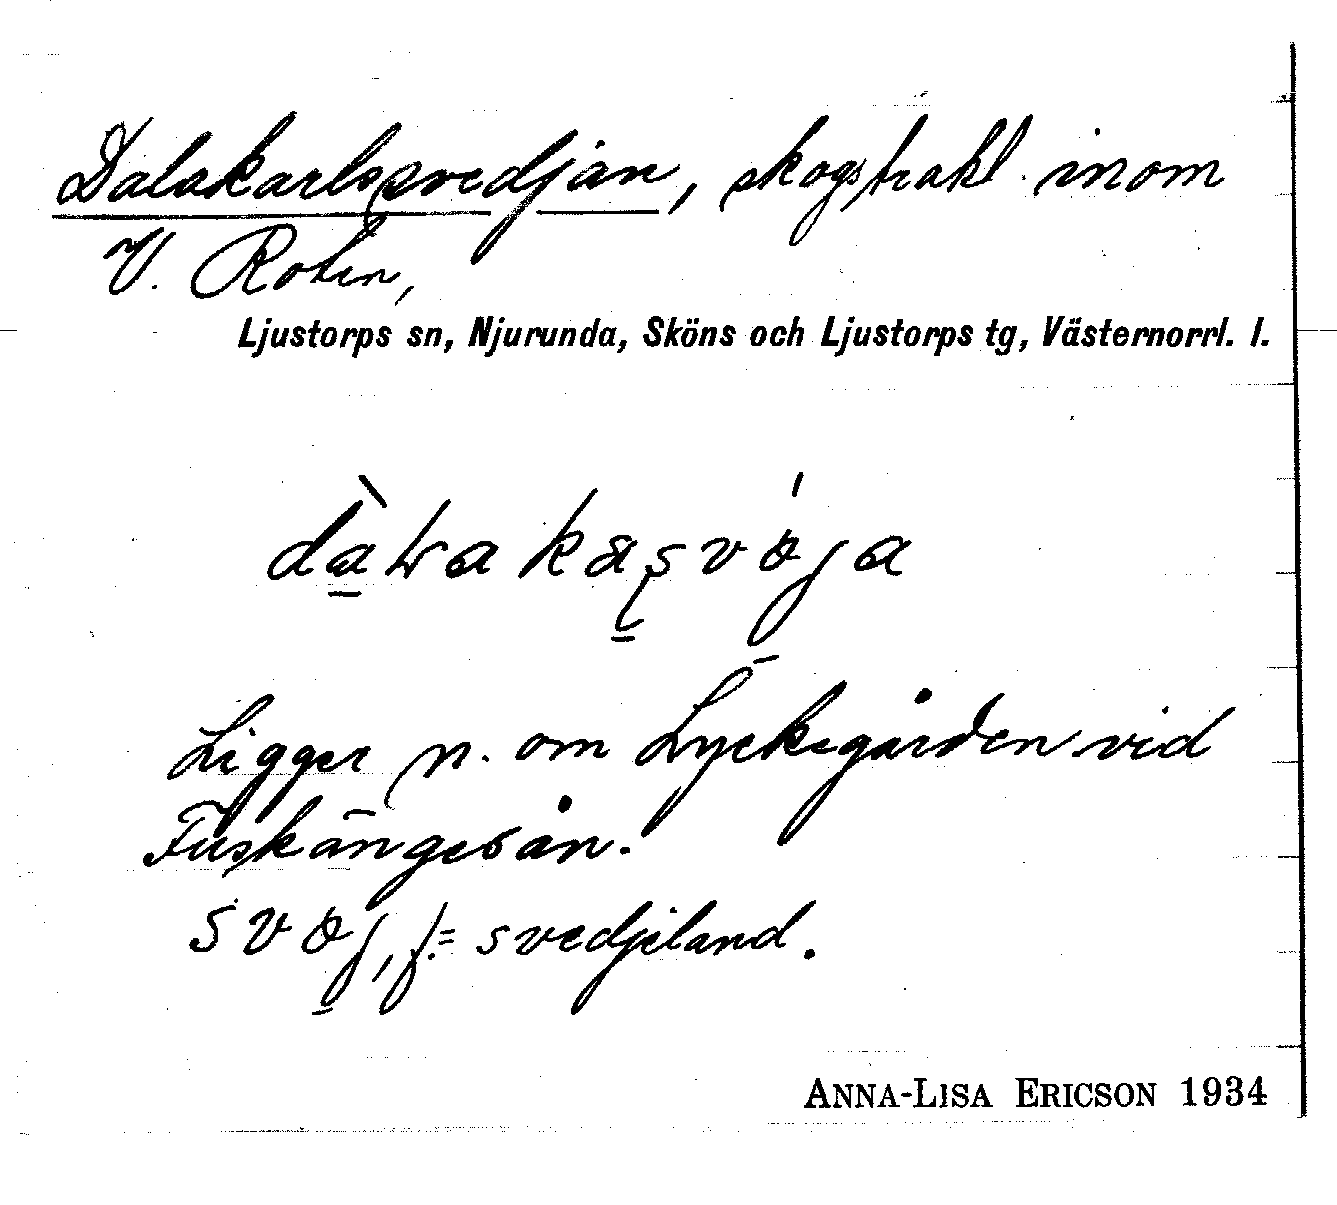 Dalakarlssvedjan, skogstrakt inom
V. Roten,
Ljustorps sn, Njurunda, Sköns och Ljustorps tg, Västernorrl. l.
Ligger n. om Lycksgården vid
Fuskängesån.
f. = svedjeland.
ANNA-LISA ERICSON 1934